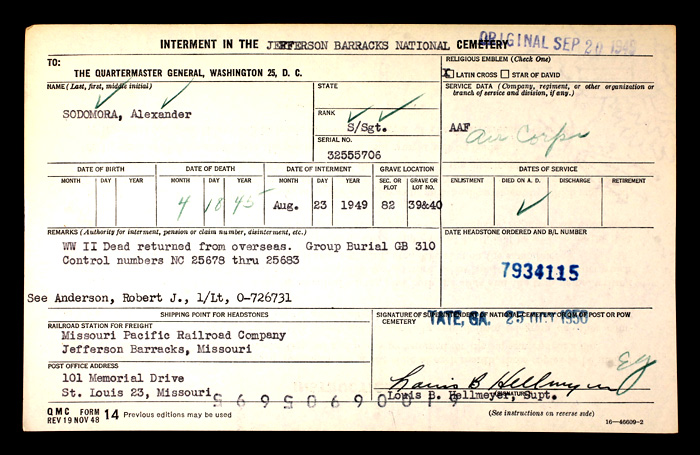 INTERMENT IN THE JEFFERSON BARRACKS NATIONAL CEMETERY
ORIGINAL SEP 20 1949
TO:
THE QUARTERMASTER GENERAL, WASHINGTON 25, D. C.
RELIGIOUS EMBLEM (Check One)
X LATIN CROSS STAR OF DAVID
NAME (Last, first, middle initial)
SODOMORA, Alexander
STATE
RANK
S/Sgt.
SERIAL NO.
32555706
SERVICE DATA (Company, regiment, or other organization or
branch of service and division, if any.)
AAF
Air Corps
DATE OF BIRTH DATE OF DEATH DATE OF INTERMENT GRAVE LOCATION DATES OF SERVICE
MONTH DAY YEAR MONTH DAY YEAR MONTH DAY YEAR SEC. OR PLOT GRAVE OR LOT NO. ENLISTMENT DIED ON A. D. DISCHARGE RETIREMENT
4 18 45 Aug. 23 1949 82 39&40
REMARKS (Authority for interment, pension or claim number, disinterment, etc.)
WW II Dead returned from overseas. Group Burial GB 310
Control numbers NC 25678 thru 25683
See Anderson, Robert J., 1/Lt, O-726731
DATE HEADSTONE ORDERED AND B/L NUMBER
7934115
SHIPPING POINT FOR HEADSTONES
RAILROAD STATION FOR FREIGHT
Missouri Pacific Railroad Company
Jefferson Barracks, Missouri
POST OFFICE ADDRESS
101 Memorial Drive
St. Louis 23, Missouri
SIGNATURE OF SUPERINTENDENT OF NATIONAL CEMETERY OR OF POST OR POW
CEMETERY
TATE, GA. 1950
EJ
Louis B Hellmeyer
Louis B. Hellmeyer, Supt.
(SIGNATURE)
QMC FORM 14 Previous editions may be used
REV 19 NOV 48
(See instructions on reverse side)
16—46609-2